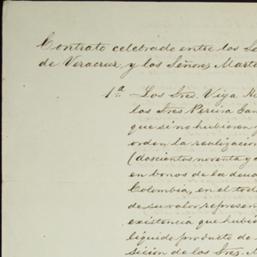 Contrato celebrado entre los Se
de Veracruz, y los Señores Marte
1ª Los Sres. Viya H
los Sres Pereira
que si no hubieren
orden la realizacion
(doscientos noventa y
en bonos de la deud
Colombia, en el tod
de su valor represen
existencia que hubie
liquido producto de
sicion de los Sres. M